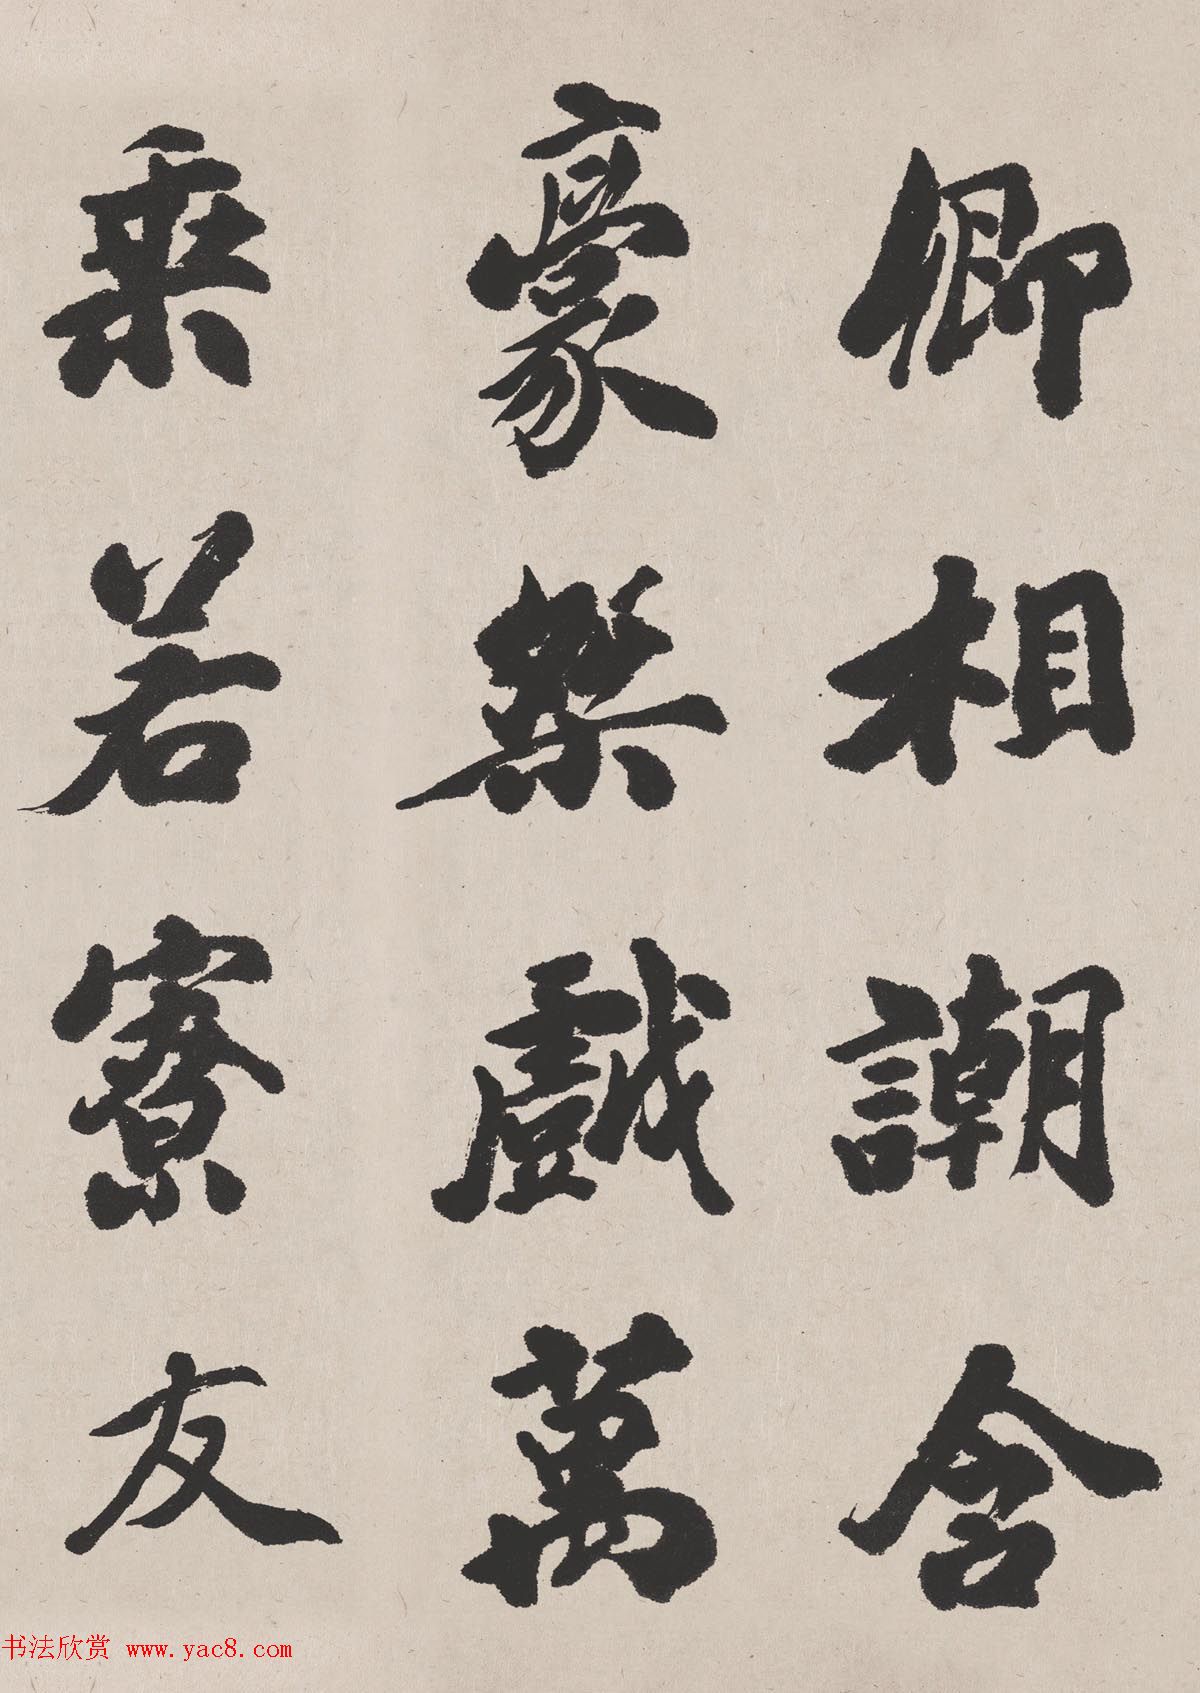 卿相謿含
豪桀戲萬
乗若寮友
书法欣赏 www.yac8.com